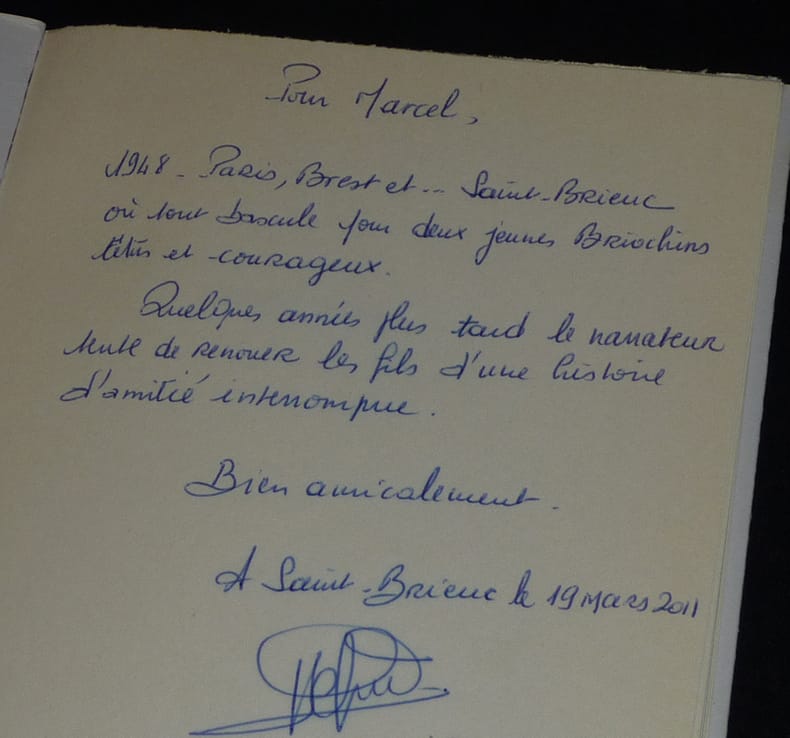 Pour Marcel,
1948 - Paris, Brest et... Saint-Brieuc
où tout bascule pour deux jeunes Briochins
têtus et courageux.
Quelques années plus tard le narrateur
tente de renouer les fils d'une histoire
d'amitié interrompue.
Bien amicalement.
A Saint-Brieuc le 19 mars 2011